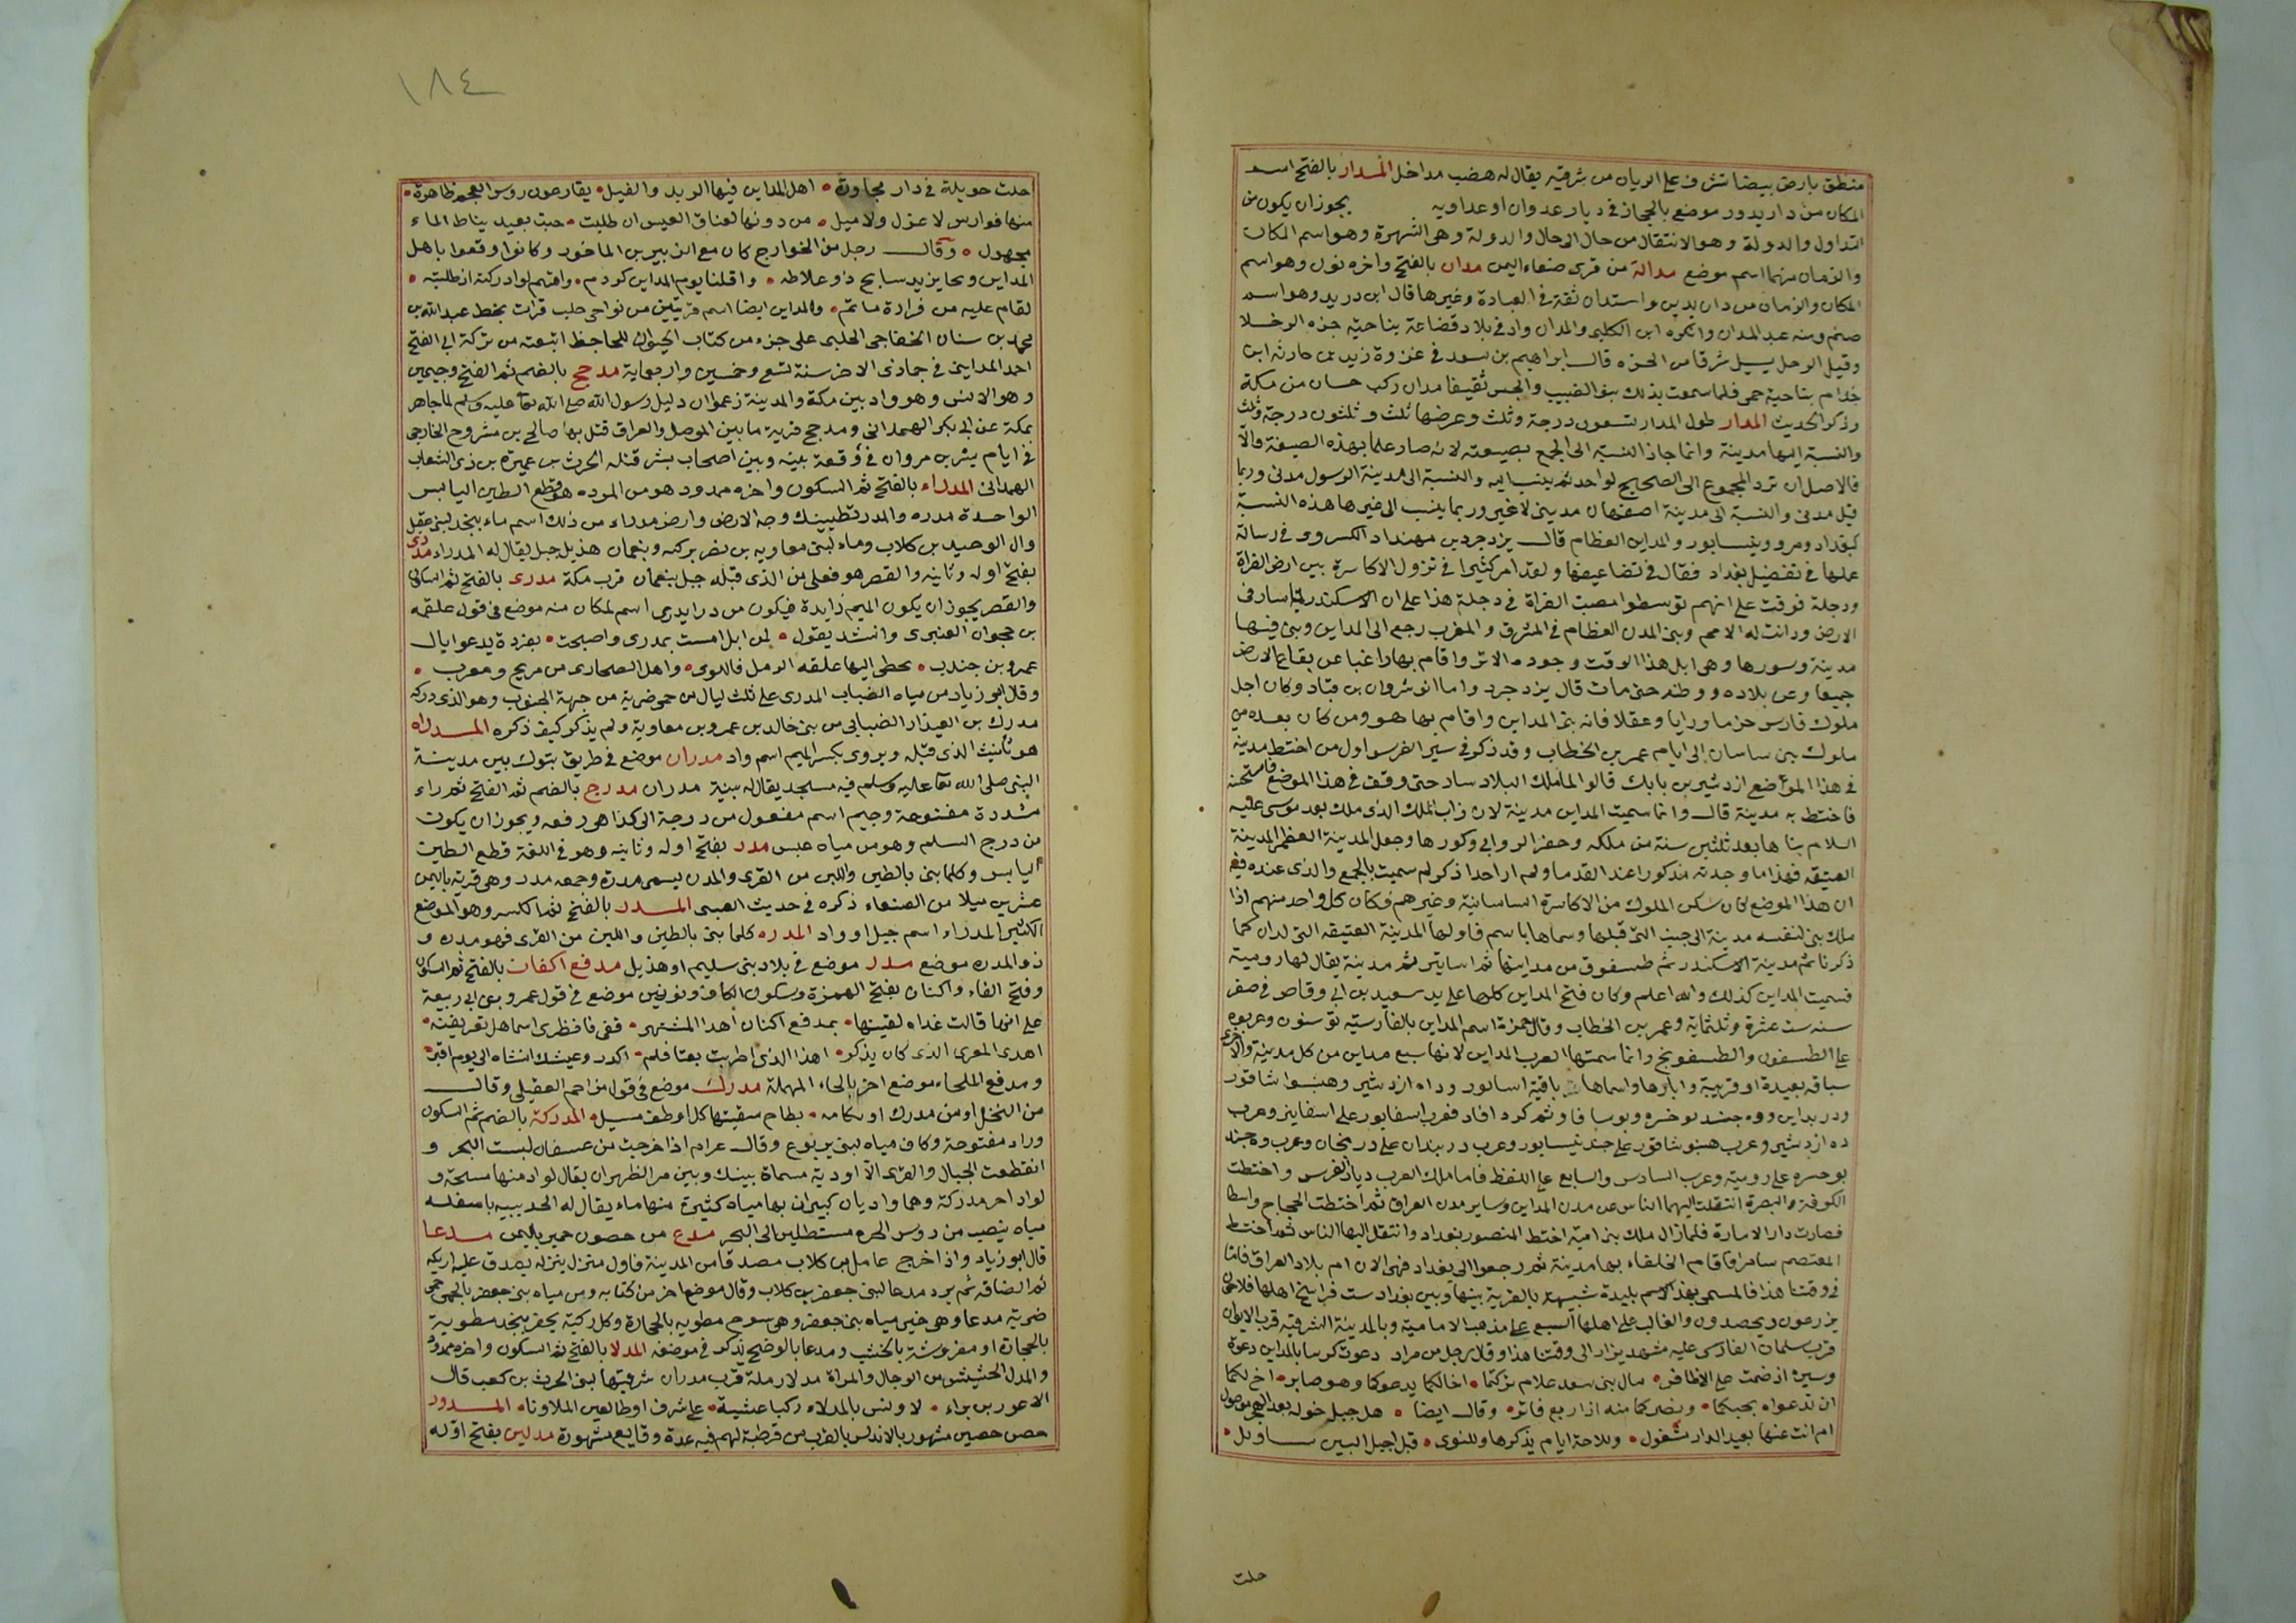 منطق بارض بيضا تشرف على الريان من شرقيه يقال له هضب مداخل المدار بالفتح اسم
المكان من دار يدور موضع بالحجاز في ديار عدوان او عدايه يجوز ان يكون من
التداول والدولة وهو الانتقال من حال الى حال والدولة وهى الشهرة وهو اسم المكان
والزمان منهما اسم موضع مدالة من قرى صنعاء اليمن مدان بالفتح واخره نون وهو اسم
المكان والزمان من دان يدين واستدان ثقة في العبادة وغيرها قال ابن دريد وهو اسم
صنم ومنه عبد المدان وانكره ابن الكلبى والمدان واد في بلاد قضاعة بناحية حزه الرخلا
وقيل الرحل يسيل شرقا من الحزه قال ابراهيم بن سعد في غزوة زيد بن حارثه ابن
جذام بناحية حمى فلما سمعت بذلك بنو الضبيب والجس ثقيفا مدان ركب حسان من مكة
وذكر الحديث المدار طول المدار تسعون درجة وثلث وعرضها ثلث وثلثون درجة وثلث
والنسبة اليها مدينة وانما جاز النسبة الى الجمع بصيغته لانه صار علما بهذه الصيغة والا
فالاصل ان ترد المجموع الى الصحيح لواحد ثم ينسب اليه والنسبة الى مدينة الرسول مدنى وربما
قيل مدنى والنسبة الى مدينة اصفهان مدينى لا غير وربما ينسب الى غيرها هذه النسبة
كبغداد ومرو ونيسابور والمداين العظام قال يزدجرد بن مهنداد الكسروى في رسالة
عملها في تفضيل بغداد فقال في تضاعيفها ولقد امر كثيرا في نزول الاكاسرة بين ارض الفراة
ودجلة فوقت على انهم توسطوا مصب الفراة في دجلة هذا على ان الاسكندر لما سار فى
الارض ودانت له الامم وبنى المدن العظام في المشرق والمغرب رجع الى المداين وبنى فيها
مدينة وسورها وهى ابل هذا الوقت وجوده الاثر واقام بها راغبا عن بقاع الارض
جميعا وعن بلاده ووطنه حتى مات قال يزدجرد واما انوشروان بن قباد وكان اجل
ملوك فارس حزما ورايا وعقلا فانه بنى المداين واقام بها هو ومن كان بعده من
ملوك بنى ساسان الى ايام عمر بن الخطاب وقد ذكر في سير الفرس اول من اختط مدينة
في هذا الموضع ازدشير بن بابك قالوا لما ملك البلاد ساد حتى وقف في هذا الموضع فاستحسنه
فاختط به مدينة قال وانما سميت المداين مدينة لان زاب الملك الذى ملك بعد موسى عليه
السلام بناها بعد ثلثين سنة من ملكه وحفر الزوابى وكورها وجعل المدينة العظمى المدينة
العتيقه فهذا ما وجدته مذكورا عند القدما ولم ار احدا ذكر لم سميت بالجمع والذى عنده فيه
ان هذا الموضع كان سكن الملوك من الاكاسرة الساسانية وغيرهم فكان كل واحد منهم اذا
ملك بنى لنفسه مدينة الى جنب التى قبلها وسماها باسم فاولها المدينة العتيقه التى لدان كما
ذكرنا ثم مدينة الاسكندر ثم طسفون من مداينها ثم اسابير ثم مدينة يقال لها رومية
فسميت المداين كذلك والله اعلم وكان فتح المداين كلها على يد سعيد بن ابى وقاص في صفر
سنه ست عشرة وثلثماية وعمر بن الخطاب وقال حمزة اسم المداين بالفارسيه توسفون وعربوه
على الطسفون والطسفونج وانما سمتها العرب المداين لانها سبع مداين من كل مدينة والاخرى
سباقه بعيدة او قريبة واثارها واسماها باقية اسابور وداه ازدشير وهنبوا شاقور
ودر بداين ووه جند بو خشره وبوسا فا وثم كرد افاد فعرب اسفابور على اسفاينر وعرب
ده ازدشير وعرب هنبو شاقور على جندنيسابور وعرب دربندان على درنجان وعرب وه جند
بو خسره على رومية وعرب السادس والسابع على اللفظ فاما ملك العرب ديار الفرس واختطت
الكوفة والبصرة انتقلت اليهما الناس عن مدن المداين وساير مدن العراق ثم اختطت الحجاج واسطا
فصارت دار الامارة فلما زال ملك بنى امية اختط المنصور بغداد وانتقل اليها الناس ثم اختط
المعتصم سامرا فاقام الخلفاء بها مدينة ثم رجعوا الى بغداد فهى الان ام بلاد العراق فاما
في وقتنا هذا فالمسمى بهذ الاسم بليدة شبيهة بالقرية بينها وبين بغداد ست فراسخ اهلها فلاحون
يزرعون ويحصدون والغالب على اهلها السبع على مذهب الامامية وبالمدينة الشرقية قرب الايوان
قرب سلمان الفارسى عليه مشهد يزار الى وقتنا هذا وقال رجل من مراد دعوت كرسا بالمداين دعوة
وسيرة اذ ضمت على الاظافر • سال بنى سعد علام تركتما • اخا لكما يدعوكا وهو صابر • اخ لكما
ان تدعواه يجبكما • ونصركما منه اذا ريع فاتر • وقال ايضا • هل جبل خوله بعد الهجر موصول
ام انت عنها بعيد الدار مشغول • وللاحة ايام يذكرها وللنوى • قبل اجيل البين تساويل •
حلت
١٨٤
حلت حويلة في دار مجاورة • اهل المداين فيها الديد والفيل • يقارعون روس العجم ظاهرة •
منها فوارس لا عزل ولا ميل • من دونها لعناق العيس ان طلبت • خبت بعيد نياط الماء
مجهول • وقال رجل من الخوارج كان مع الزبير بن الماخور وكانوا اوقعوا باهل
المداين ونجا يزيد سابح ذو علاطه • واقلنا يوم المداين كردم • واقسم لو ادركته اذ طلبته •
لقام عليه من فزارة ماتم • والمداين ايضا اسم قريتين من نواحى حلب قرات بخط عبد الله بن
محمد بن سنان الخفاجى الحلبى على جزء من كتاب الحيوان للجاحظ ابتعته من تركة ابى الفتح
احد المداينى في جمادى الاخر سنة تسع وخمسين واربعماية مدجج بالضم ثم الفتح وجيمين
وهو الابس وهو واد بين مكة والمدينة زعموا ان دليل رسول الله صلى الله تعا عليه وسلم لما جاهر
بمكة عن ابى بكر الهمدانى ومدجج قرية ما بين الموصل والعراق قتل بها صالح بن مشروح الخارجى
في ايام بشر بن مروان في وقعة بينه وبين اصحاب بشر قتله الحرث بن عميرة بن ذى الشعاب
الهمدانى المدراء بالفتح ثم السكون واخره ممدود هو من المدره هو قطع الطين اليابس
الواحدة مدره والمدر تطيينك وجه الارض وارض مدراء من ذلك اسم ماء بنجد لبنى عقيل
وال الوحيد بن كلاب وماء لبنى معاويه بن نصر بركبه وبنعمان هذيل جبل يقال له المدراء مدرى
بفتح اوله وثانيه والقصر هو فعلى من الذى قبله جبل بنعمان قرب مكة مدرى بالفتح ثم السكون
والقصر يجوز ان يكون الميم زايدة فيكون من درا يدرى اسم لمكان منه موضع في قول علقمه
بن جحوان العنبرى وانشد يقول • لمن ابل امست بمدرى واصبحت • بفردة يدعوا يال
عمرو بن جندب • تخطى اليها علقه الرمل فاللوى • واهل الصحارى من مريح ومعرب •
وقال ابو زياد من مياه الضباب المدرى على ثلث ليال من حمى ضرية من جهة الجنوب وهو الذى دركه
مدرك بن العيذار الضبابى من بنى خالد بن عمرو بن معاوية ولم يذكر كيف ذكره المدراة
هو تانيث الذى قبله ويروى بكسر الميم اسم واد مدران موضع في طريق تبوك بين مدينة
النبى صلى الله تعا عليه وسلم فيه مسجد يقال له ثنية مدران مدرج بالضم ثم الفتح ثم راء
مشددة مفتوحة وجيم اسم مفعول من درجة الى كذا هو رفعه ويجوز ان يكون
من درج السلم وهو من مياه عبس مدر بفتح اوله وثانيه وهو في اللغة قطع الطين
اليابس وكلما بنى بالطين واللبن من القرى والمدن يسمى مدرة وجمعه مدر وهى قرية باليمن
عشرين ميلا من الصنعاء ذكره في حديث العبسى المدر بالفتح ثم الكسر وهو الموضع
الكثير المدراء اسم جبل او واد المدره كلما بنى بالطين واللبن من القرى فهو مدره و
ذو المدره موضع مدر موضع في بلاد بنى سليم او هذيل مدفع اكفان بالفتح ثم السكون
وفتح الفاء واكنان بفتح الهمزة وسكون الكاف ونونين موضع في قول عمرو بن ابى ربيعة
على انها قالت غداه لقيتها • بمدفع اكنان اهدا المشتهر • قفى فانظرى اسما هل تعرفينه •
اهدى المعرى الذى كان يذكر • اهذا الذى اطربت بعتا فلم • اكدر وعيشك انشاه الى يوم اقبر •
ومدفع الملحاء موضع اخر بالحاء المهملة مدرك موضع في قول مزاحم العقيلى وقال
من النخل او من مدرك او ثكامه • بطاح سقيتها كل اوطف مسيل • المدركة بالضم ثم السكون
وراء مفتوحة وكاف مياه لبنى يربوع وقال عرام اذا خرجت من عسفان لبست البحر و
انقطعت الجبال والقرى الا اودية مسماة بينك وبين مر الظهران يقال لواد منها مسيحة و
لواد اخر مدركة وهما واديان كبيران بهما مياه كثيرة منها ماء يقال له الحديبيه باسفله
مياه ينصب من روس الحره مستطيلين الى البحر مدع من حصون حمير باليمن مدعا
قال ابو زياد واذا خرج عامل بنى كلاب مصدقا من المدينة فاول منزل ينزله يصدق عليه اريكه
ثم العناقه ثم يرد مدعا لبنى جعفر بن كلاب وقال موضع اخر من كتابه ومن مياه بنى جعفر بالحمى حمى
ضرية مدعا وهى خير مياه بنى جعفر وهى سوح مطويه بالحجارة وكل ركية يحفر بنجد مطوية
بالحجارة او مفروشة بالخشب ومدعا بالوضح يذكر في موضعه المدلا بالفتح ثم السكون واخره ممدود
والمدل الخشيش من الرجال والمراة مدلا رملة قرب مدران شرقيتها لبنى الحرث بن كعب قال
الاعور بن براء • لا ونس بالمدلاء ركبا عشية • على شرف او طالعين الملاونا • المدور
حصن حصين مشهور بالاندلس بالقرب من قرطبة لهم فيه عدة وقايع مشهورة مدلين بفتح اوله